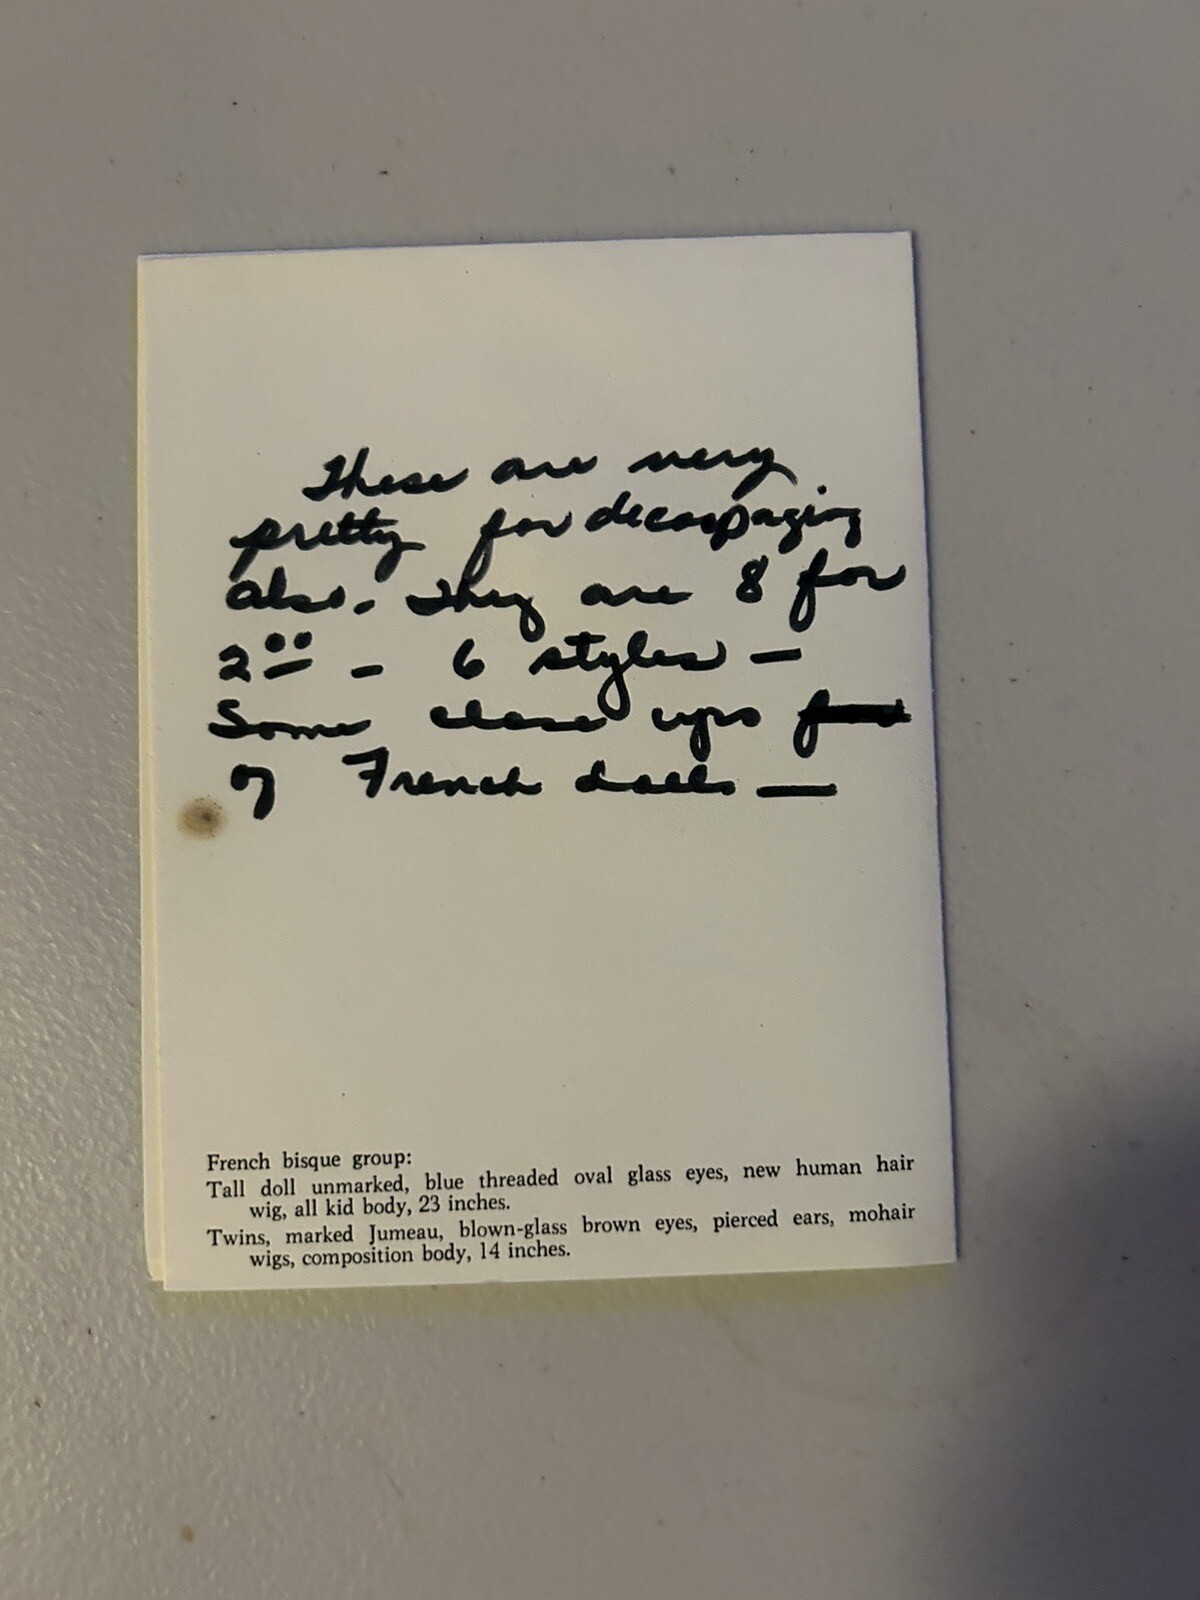 These are very
pretty for decoupaging
also. They are 8 for
2⁰⁰ - 6 styles —
Some close ups
of French dolls —
French bisque group:
Tall doll unmarked, blue threaded oval glass eyes, new human hair
wig, all kid body, 23 inches.
Twins, marked Jumeau, blown-glass brown eyes, pierced ears, mohair
wigs, composition body, 14 inches.